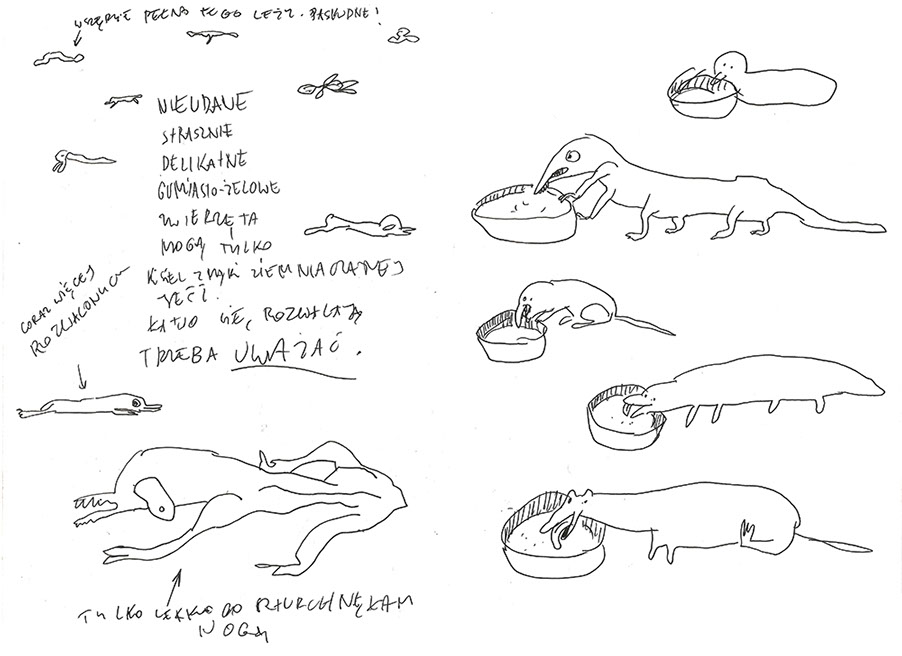 WSZĘDZIE PEŁNO TEGO LEŻY. PASKUDNE!
NIEUDANE
STRASZNIE
DELIKATNE
GUMIASTO-ŻELOWE
ZWIERZĘTA
MOGĄ TYLKO
KISIEL Z MĄKI ZIEMNIACZANEJ
ŁATWO SIĘ ROZWALAJĄ
TRZEBA UWAŻAĆ.
CORAZ WIĘCEJ
ROZWALONYCH
TYLKO LEKKO GO SZTURCHNĘŁAM
NOGĄ